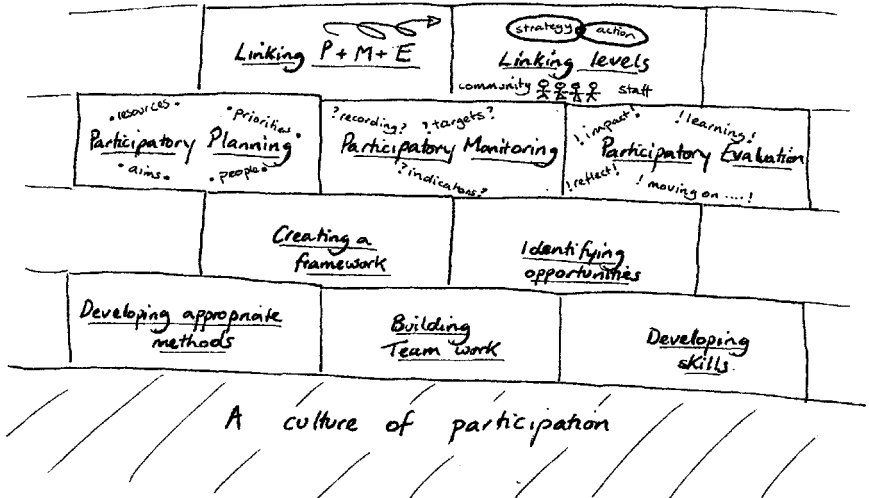 strategy action
Linking P + M + E
Linking levels
community staff
resources
priorities
Participatory Planning
aims
people
? recording? ? targets?
Participatory Monitoring
? indicators?
! impact! ! learning!
Participatory Evaluation
! reflect! ! moving on ....!
Creating a
framework
Identifying
opportunities
Developing appropriate
methods
Building
Team work
Developing
skills
A culture of participation